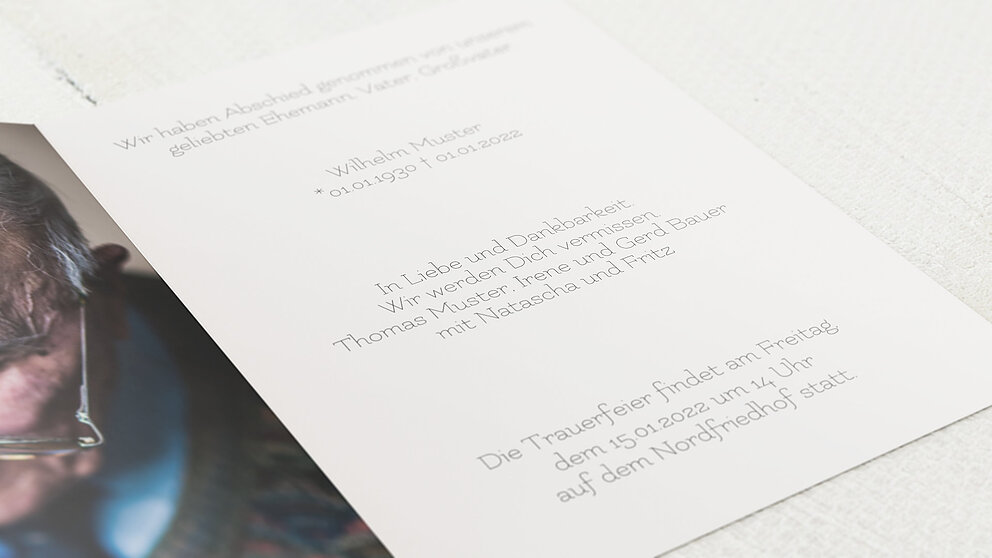 Wir haben Abschied genommen von unserem
geliebten Ehemann, Vater, Großvater
Wilhelm Muster
* 01.01.1930 † 01.01.2022
In Liebe und Dankbarkeit.
Wir werden Dich vermissen.
Thomas Muster, Irene und Gerd Bauer
mit Natascha und Fritz
Die Trauerfeier findet am Freitag,
dem 15.01.2022 um 14 Uhr
auf dem Nordfriedhof statt.